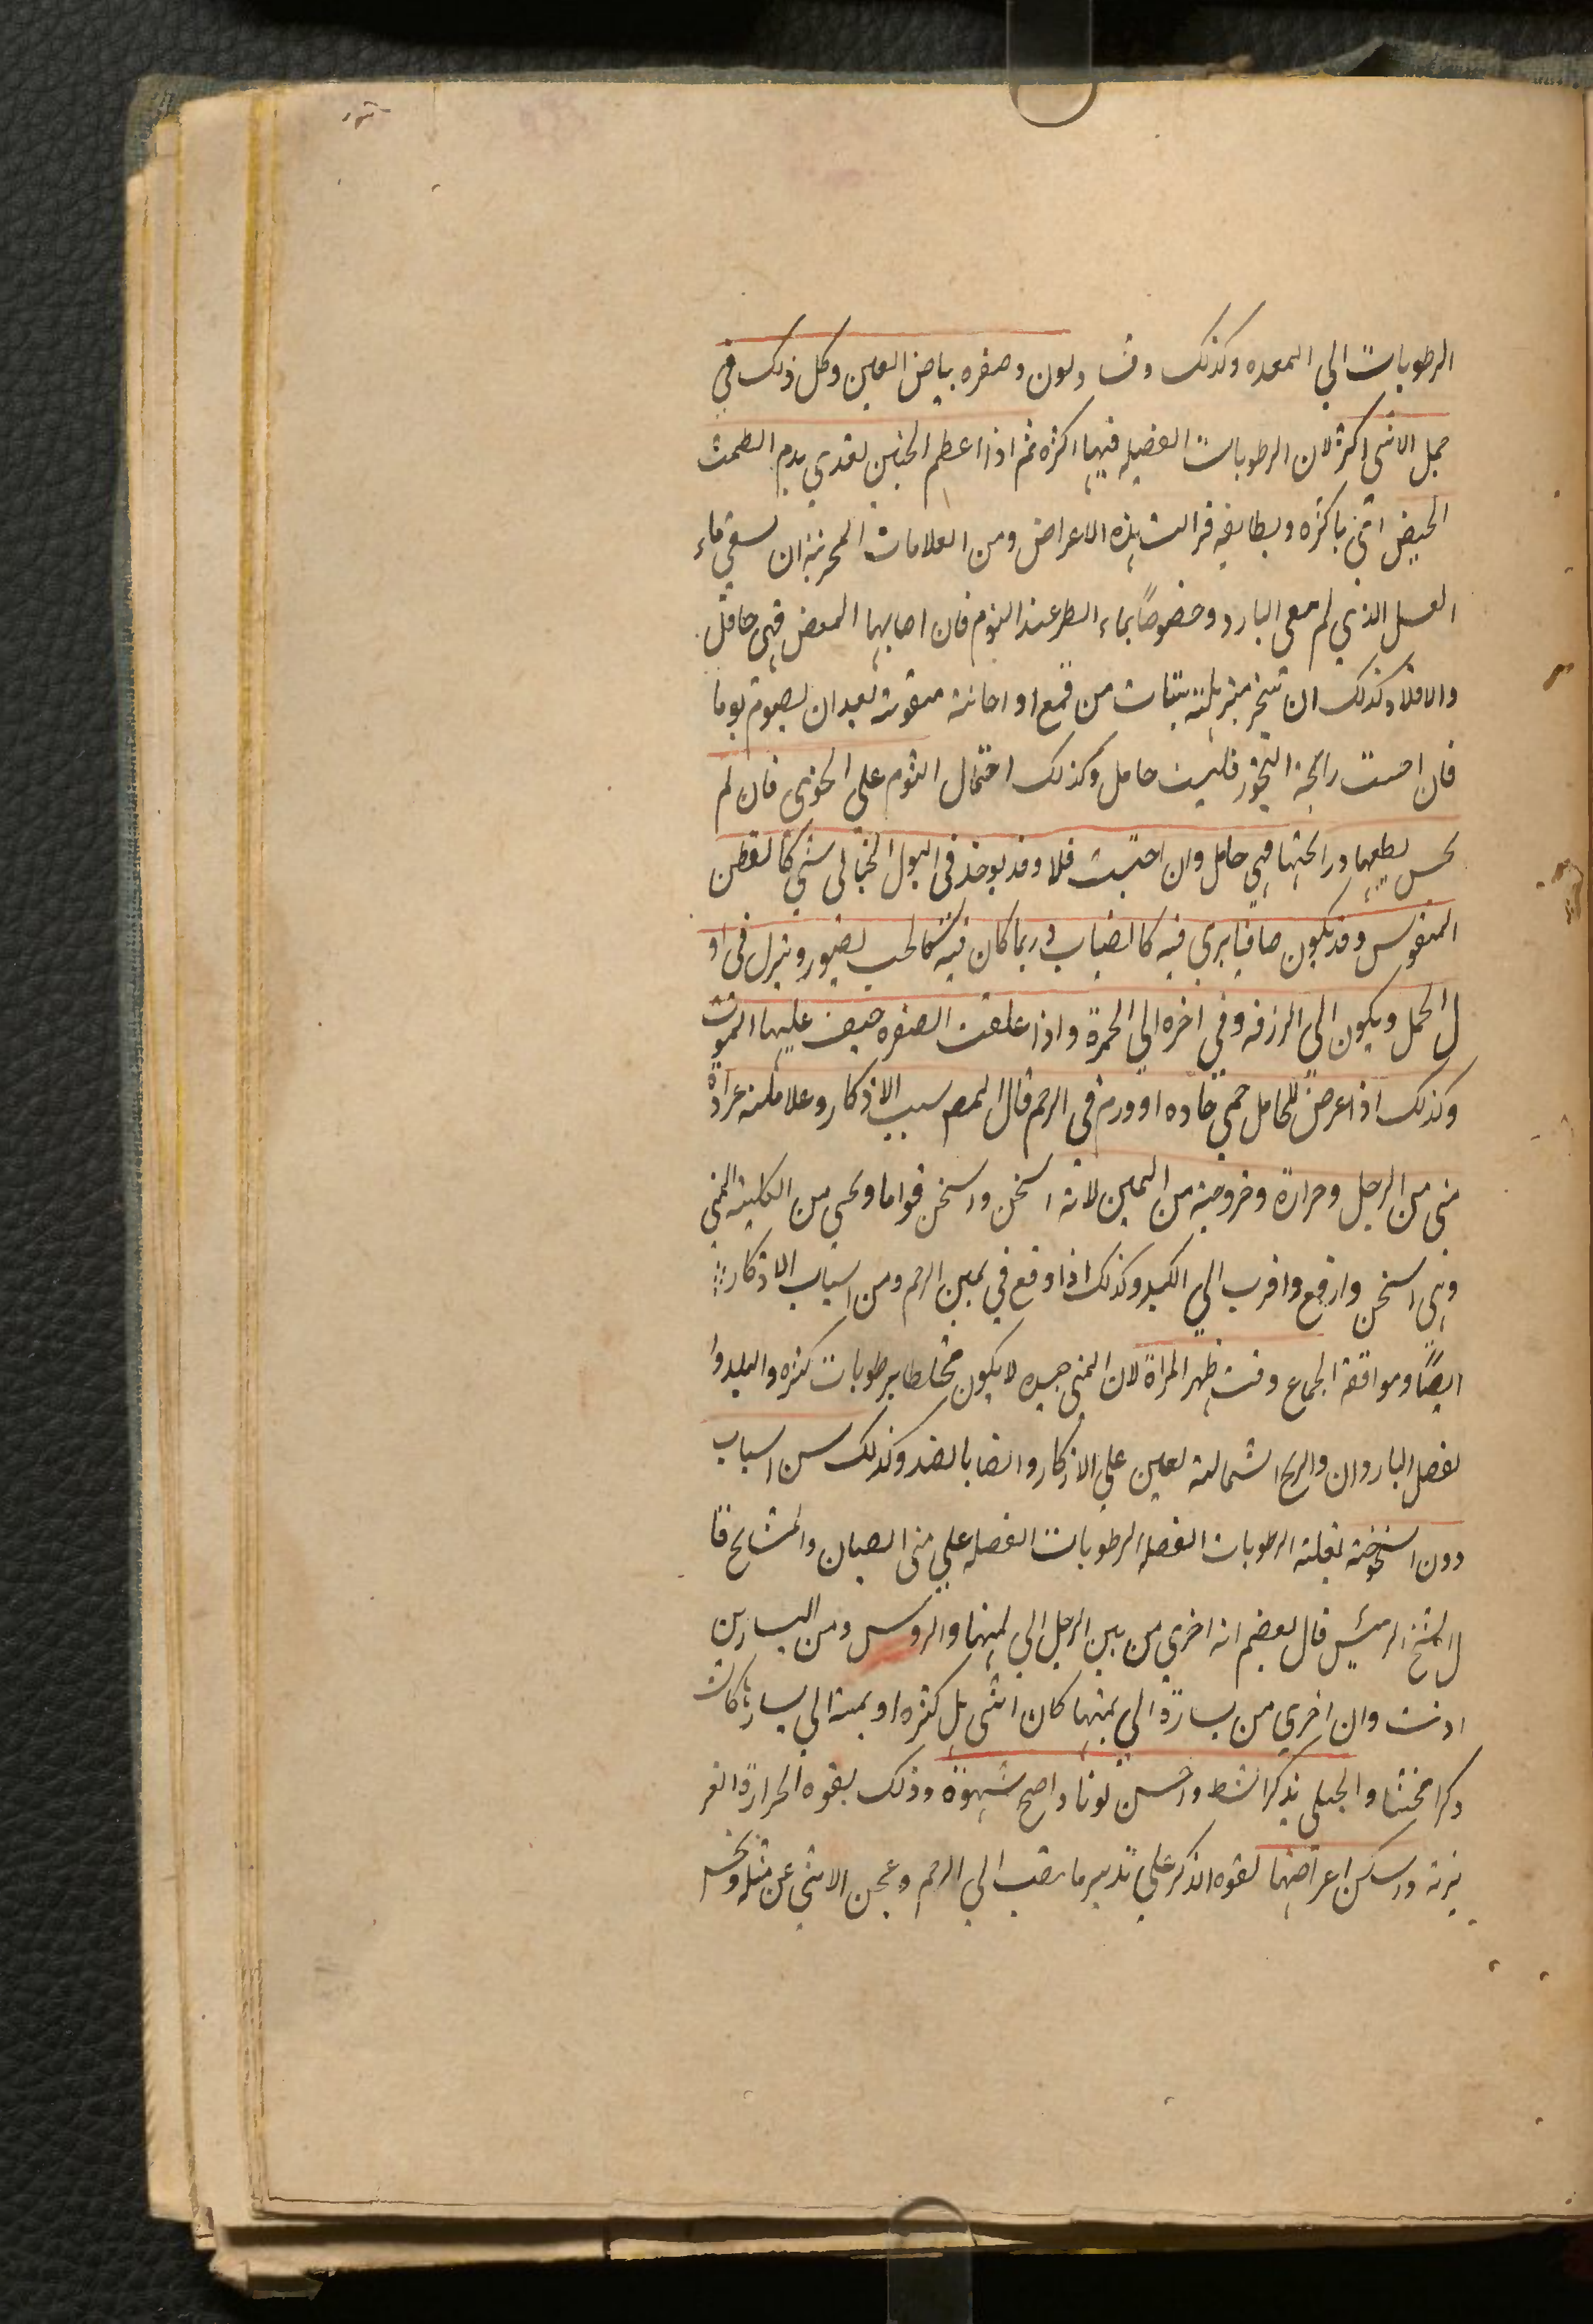 الرطوبات الي المعده وكذلك وقت ولون وصفره بياض العين وكل ذلك في
حمل الانثي اكثر لان الرطوبات الفضليه فيها اكثره ثم اذا اعظم الجنين تغدي بدم الطمث
الحيض اتي باكثره وبطايفه فزالت هذه الاعراض ومن العلامات المجربة ان يسقي ماء
العسل الذي لم معي البارد وخصوصاً بماء المطر عند النوم فان اصابها المغص فهي حامل
والا فلا وكذلك ان تبخر من قمع او اجانة مثقوبة بعد ان يصوم يوما
فان احست رايحة البخور فليست حامل وكذلك احتمال الثوم علي الخوي فان لم
تحس بطعمها ورائحتها فهي حامل وان احست فلا وقد يوخذ في البول الحبالي شي كالقطن
المنفوس وقد يكون صافيا يري فيه كالضباب وربما كان فيه كالحب يصور وينزل في او
ل الحمل ويكون الي الزرقه وفي اخره الي الحمرة واذا علقت الصغره خيف عليها الموت
وكذلك اذا عرض للحامل حمي حاده او ورم في الرحم قال المص سبب الاذكار وعلامته غزارة
مني من الرجل وحرارة وخروجه من اليمين لانه اسخن واسخن قواما ويجي من الكلية اليمني
وهي اسخن وارفع واقرب الي الكبد وكذلك اذا وقع في يمين الرحم ومن اسباب الاذكار
ايضاً وموافقة الجماع وقت طهر المراة لان المني حينيذ لا يكون مختلطا برطوبات كثره والبلد وا
لفصل الباردان والريح الشمالية تعين علي الاذكار والضد بالضد وكذلك سن اسباب
دون الشيخوخة لغلبة الرطوبات الفضلية الرطوبات الفضله علي مني الصبيان والمشايخ قا
ل الشيخ الرئيس قال بعضهم انه اخري من يمين الرجل الي يمينها والروس ومن اليسارين
ادنت وان اخري من يساره الي يمينها كان انثي بل كثره او يمينه الي يسارها كانت
ذكرا مخنثا والحبلي بذكر انشط واحسن لونا واصح شهوة وذلك لقوه الحرارة الغر
يزية واسكن اعراضها لقوه الذكر علي تدبير ما ينصب الي الرحم وعجز الانثي عن مثله ويحس